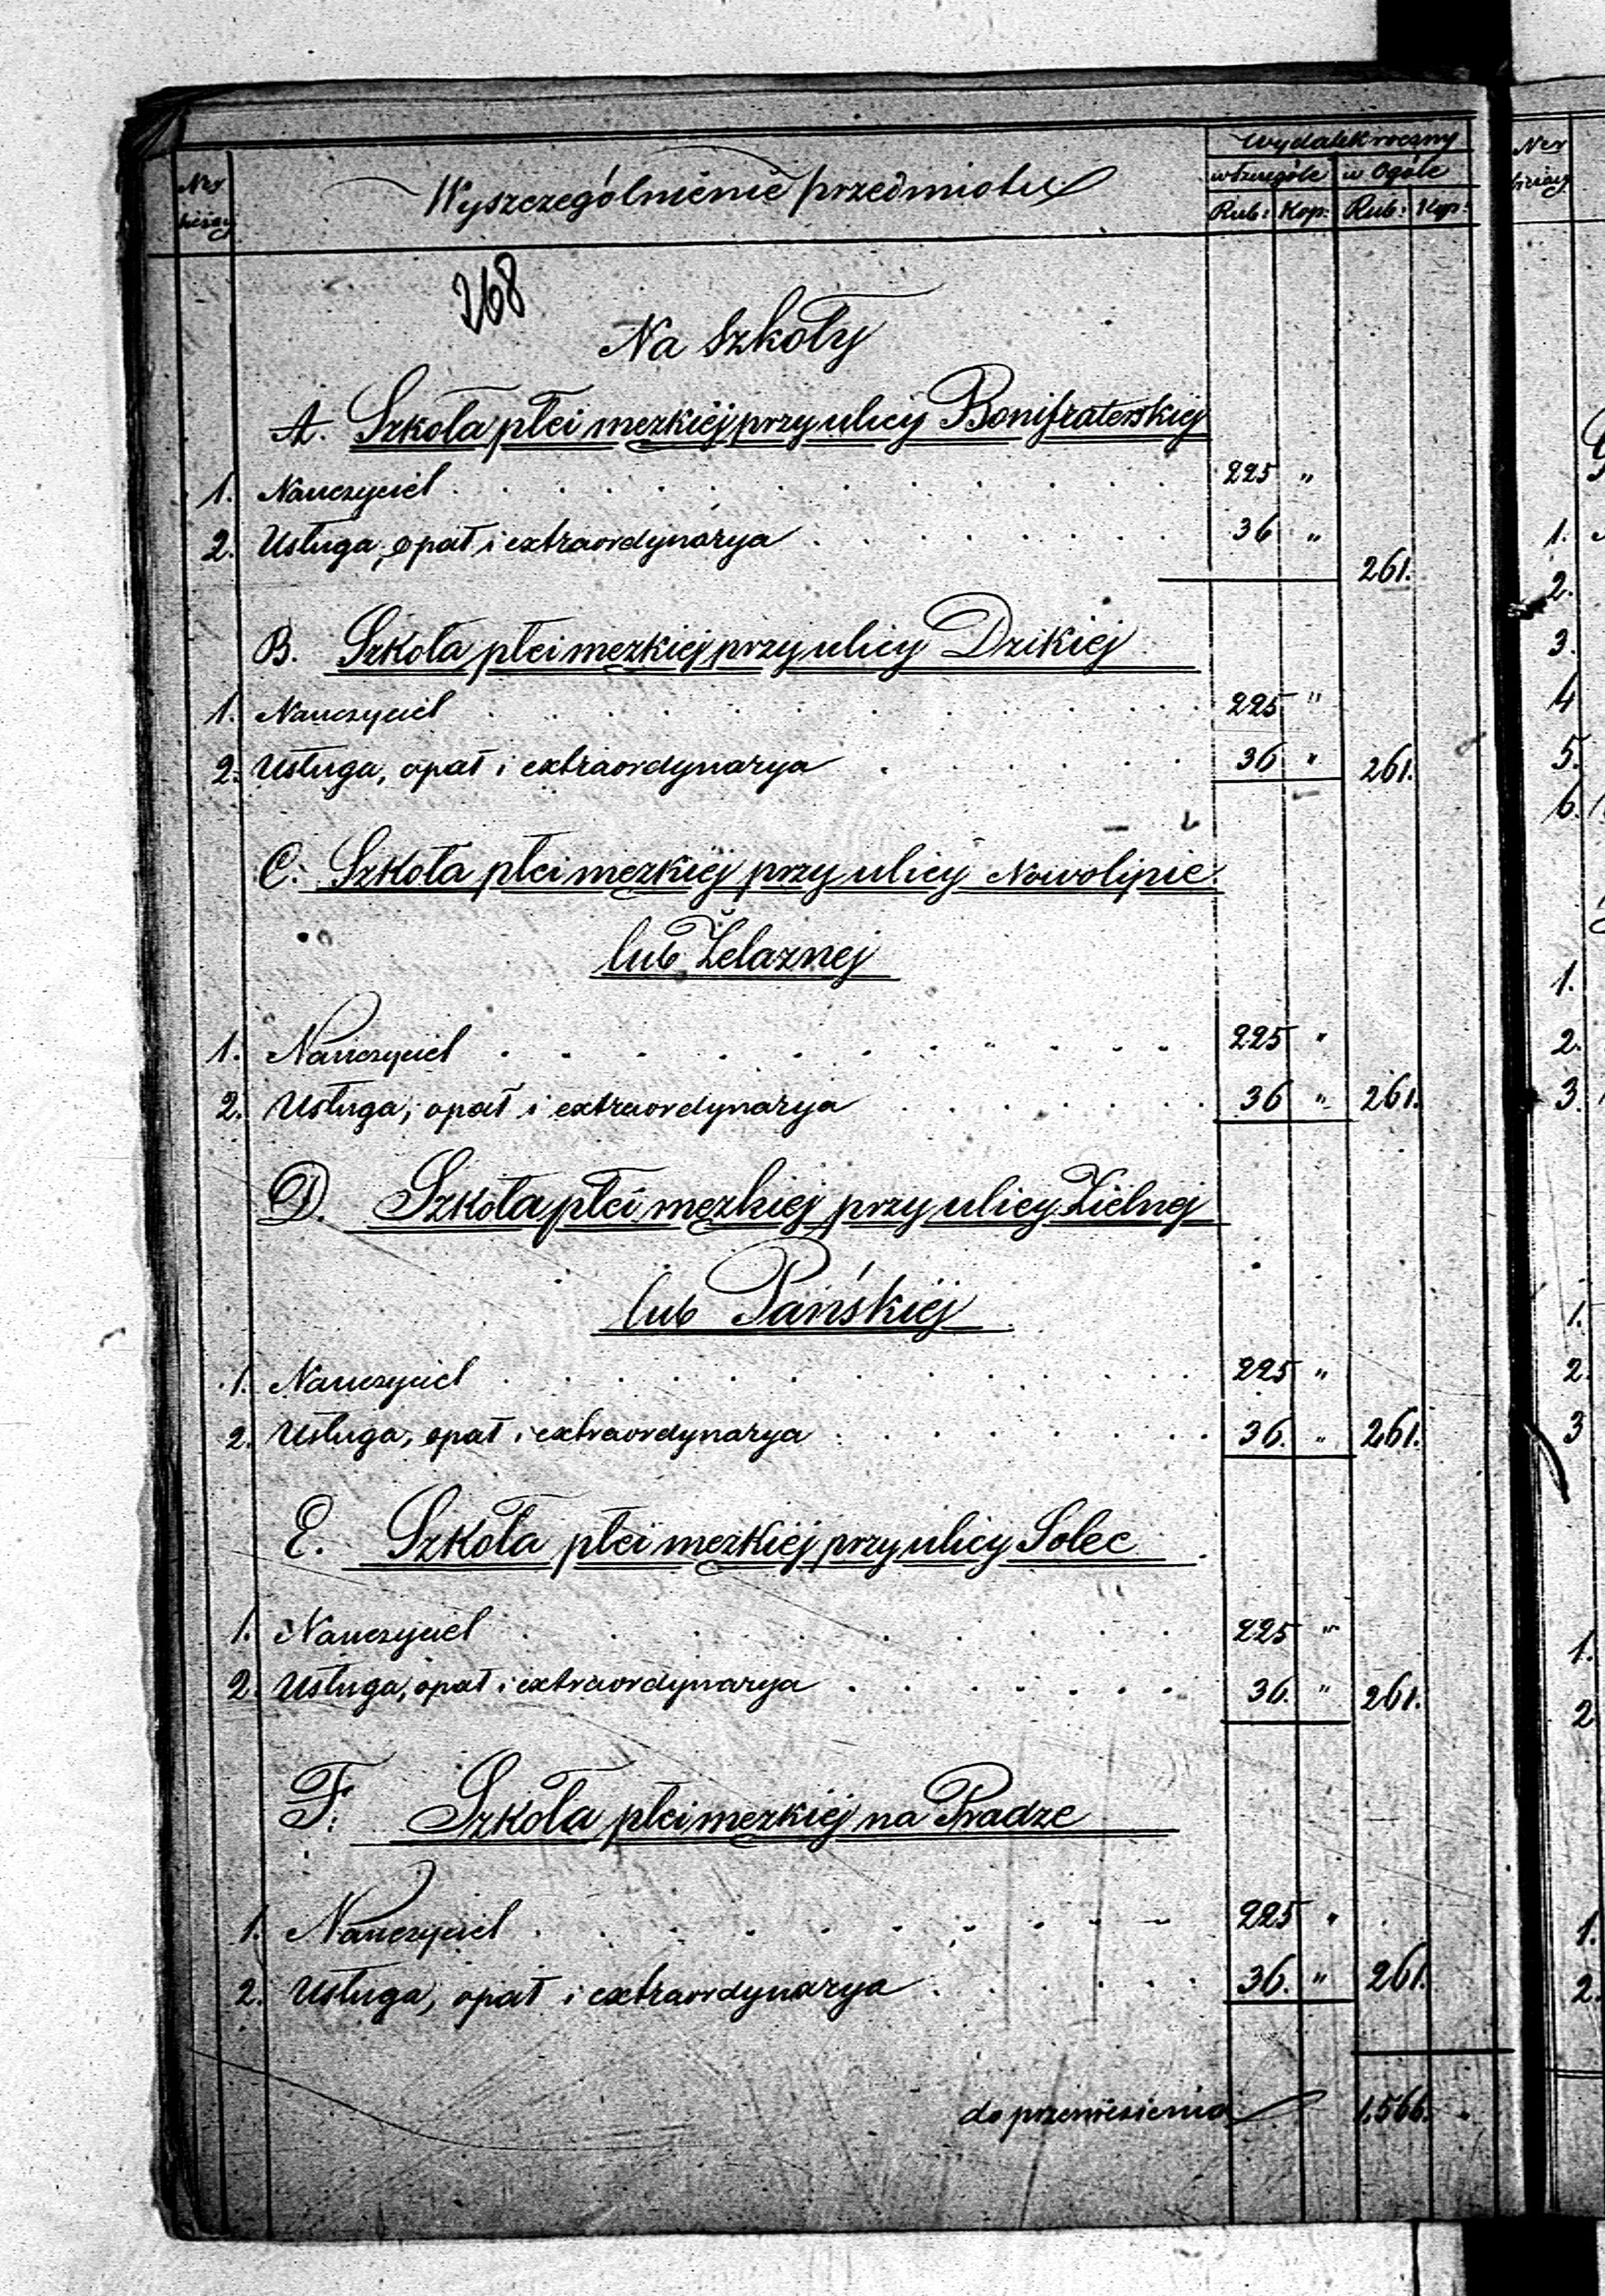 Ner
bieżący
Wyszczególnienie przedmiotu
Wydatek roczny
w szczególe w Ogóle
Rub: Kop: Rub: Kop:
268
Na Szkoły
A. Szkoła płci męzkiéj przy ulicy Bonifraterskiej
1. Nauczyciel . . . . . . . . . . . . 225 "
2. Usługa, opał i extraordynarya . . . . . . . 36 "
261.
B. Szkoła płci męzkiej przy ulicy Dzikiéj
1. Nauczyciel . . . . . . . . . . . . 225 "
2. Usługa, opał i extraordynarya . . . . . . 36 " 261.
C. Szkoła płci męzkiéj przy ulicy Nowolipie
lub Żelaznej
1. Nauczyciel . . . . . . . . . . . . 225 "
2. Usługa, opał i extraordynarya . . . . . . 36 " 261.
D. Szkoła płci męzkiej przy ulicy Zielnej
lub Pańskiéj
1. Nauczyciel . . . . . . . . . . . . 225 "
2. Usługa, opał i extraordynarya . . . . . . . 36. " 261.
E. Szkoła płci męzkiéj przy ulicy Solec
1. Nauczyciel . . . . . . . . . . 225 "
2. Usługa, opał i extraordynarya . . . . . . . 36. " 261.
F. Szkoła płci męzkiéj na Pradze
1. Nauczyciel . . . . . . . . . . . 225 "
2. Usługa, opał i extraordynarya . . . . . . 36. " 261.
do przeniesienia 1.566.
Ner
bieżący
1.
2.
3.
4
5.
6.
1.
2.
3.
1.
2.
3
1.
2
1.
2.